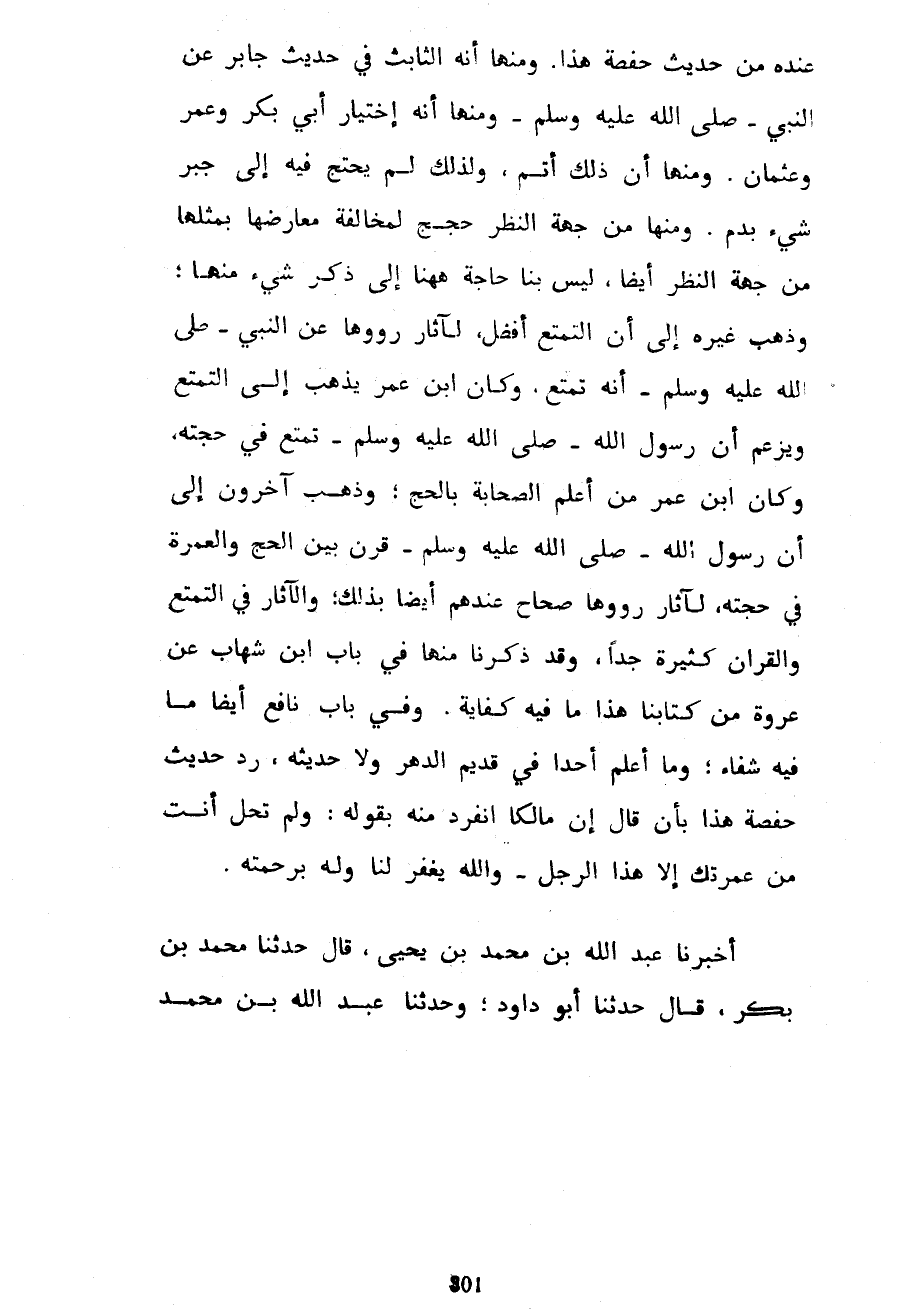 عنده من حديث حفصة هذا. ومنها أنه الثابث في حديث جابر عن
النبي ـ صلى الله عليه وسلم ـ ومنها أنه إختيار أبي بكر وعمر
وعثمان . ومنها أن ذلك أتـم ، ولذلك لـم يحتج فيه إلى جبر
شيء بدم . ومنها من جهة النظر حجـج لمخالفة معارضها بمثلها
من جهة النظر أيضا ، ليس بنا حاجة ههنا إلى ذكـر شيء منهـا ؛
وذهب غيره إلى أن التمتع أفضل، لـآثار رووها عن النبي ـ صلى
الله عليه وسلم ـ أنه تمتع . وكـان ابن عمر يذهب إلـى التمتع
ويزعم أن رسول الله ـ صلى الله عليه وسلم ـ تمتع في حجته،
وكـان ابن عمر من أعلم الصحابة بالحج ؛ وذهـب آخرون إلى
أن رسول الله ـ صلى الله عليه وسلم ـ قرن بين الحج والعمرة
في حجته، لـآثار رووها صحاح عندهم أيضا بذلك؛ والآثار في التمتع
والقران كـثيرة جداً ، وقد ذكـرنا منها في باب ابن شهاب عن
عروة من كـتابنا هذا ما فيه كـفاية . وفـي باب نافع أيضا مـا
فيه شفاء ؛ وما أعلم أحدا في قديم الدهر ولا حديثه ، رد حديث
حفصة هذا بأن قال إن مالكا انفرد منه بقوله : ولم تحل أنـت
من عمرتك إلا هذا الرجل ـ والله يغفر لنا ولـه برحمته .
أخبرنا عبد الله بن محمد بن يحيى ، قال حدثنا محمد بن
بكـر ، قـال حدثنا أبو داود ؛ وحدثنا عبـد الله بـن محمـد
301